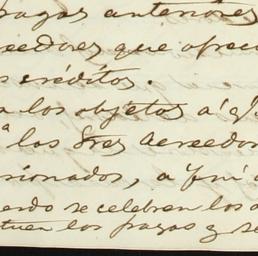 pagas anteriores
reedores que ofrec
s créditos.
a los objetos á q
a los Sres Acreedor
cionados, a fin d
erdo se celebren los a
tuen los pagos y se